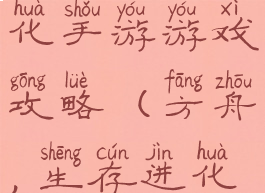 huà shǒu yóu yóu xì
化手游游戏
gōng lüè fāng zhōu
攻略（方舟
shēng cún jìn huà
，生存进化